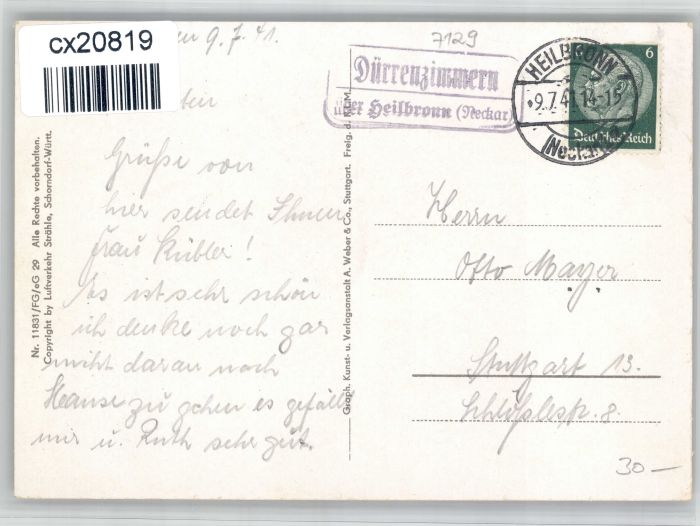 cx20819
9.7.41.
7129
Dürrenzimmern
über Heilbronn (Neckar)
HEILBRONN
9.7.41.14-15
(Neckar)
6
Deutsches Reich
Grüße von
hier sendet Ihnen
Frau Kübler!
Es ist sehr schön
ich denke noch gar
nicht daran nach
Hause zu gehen es gefällt
mir u. Ruth sehr gut.
Nr. 11831/FG/eG 29 Alle Rechte vorbehalten.
Copyright by Luftverkehr Strähle, Schorndorf-Württ.
Graph. Kunst- u. Verlagsanstalt A. Weber & Co., Stuttgart. Freig. d. RLM
Herrn
Otto Mayer
Stuttgart 13.
Schlößlestr. 8.
30-